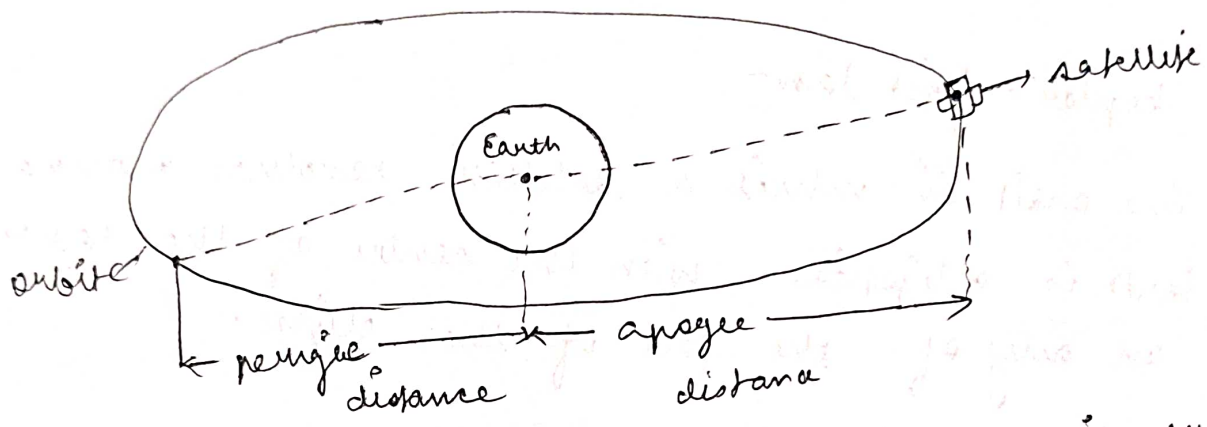 satellite
Earth
orbit
perigee distance
apogee distance